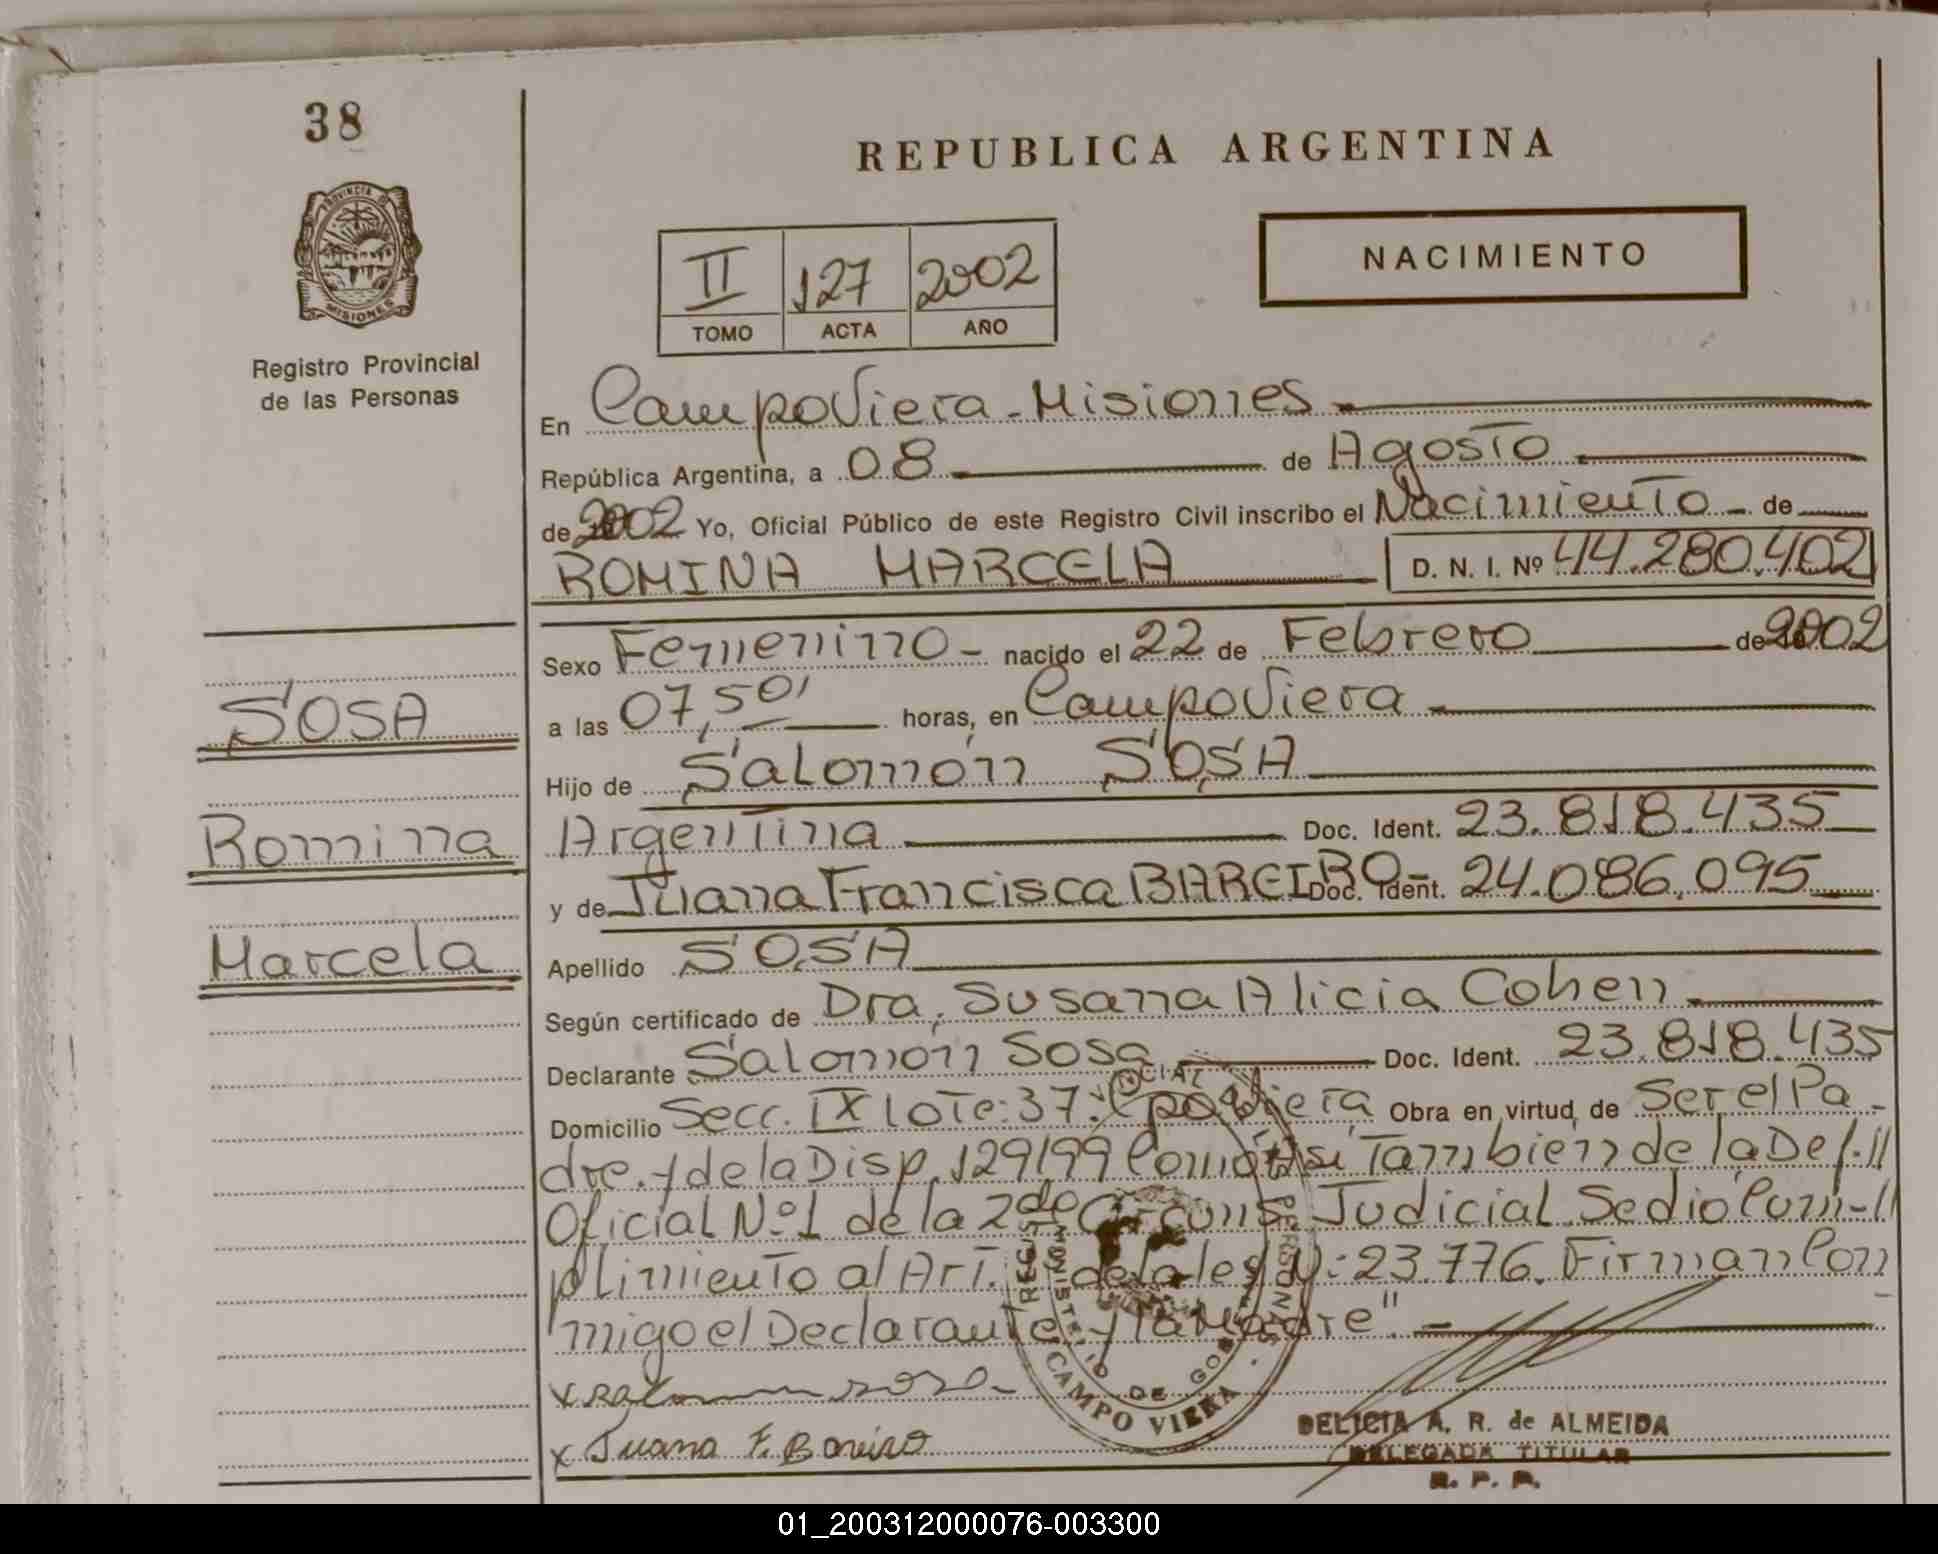 38
REPUBLICA ARGENTINA
PROVINCIA DE
MISIONES
Registro Provincial
de las Personas
II 127 2002
TOMO ACTA AÑO
NACIMIENTO
En CampoViera - Misiones
República Argentina, a 08 de Agosto
de 2002 Yo, Oficial Público de este Registro Civil inscribo el Nacimiento - de
ROMINA MARCELA D. N. I. Nº 44.280.402
Sexo Femenino - nacido el 22 de Febrero de 2002
SOSA
a las 07,50' horas, en CampoViera
Hijo de Salomón SOSA
Romina
Argentina Doc. Ident. 23.818.435
y de Juana Francisca BAREIRO - Doc. Ident. 24.086.095
Marcela
Apellido SOSA
Según certificado de Dra, Susana Alicia Cohen
Declarante Salomón Sosa Doc. Ident. 23.818.435
Domicilio Secc. IX Lote: 37. CpoViera Obra en virtud de Ser el Pa-
dre. y de la Disp. 129/99 Como Así Tambien de la Def.//
Oficial Nº1 de la 2do Circuns. Judicial. Se dió Cum-//
plimiento al Art. de la ley N: 23.776. Firman Con
migo el Declarante y la Madre". -
x Salomon sosa -
x Juana F. Bareiro
REGISTRO PERSONAS
MINISTERIO DE GOB
CAMPO VIERA
DELICIA A. R. de ALMEIDA
DELEGADA TITULAR
R. P. P.
01_200312000076-003300